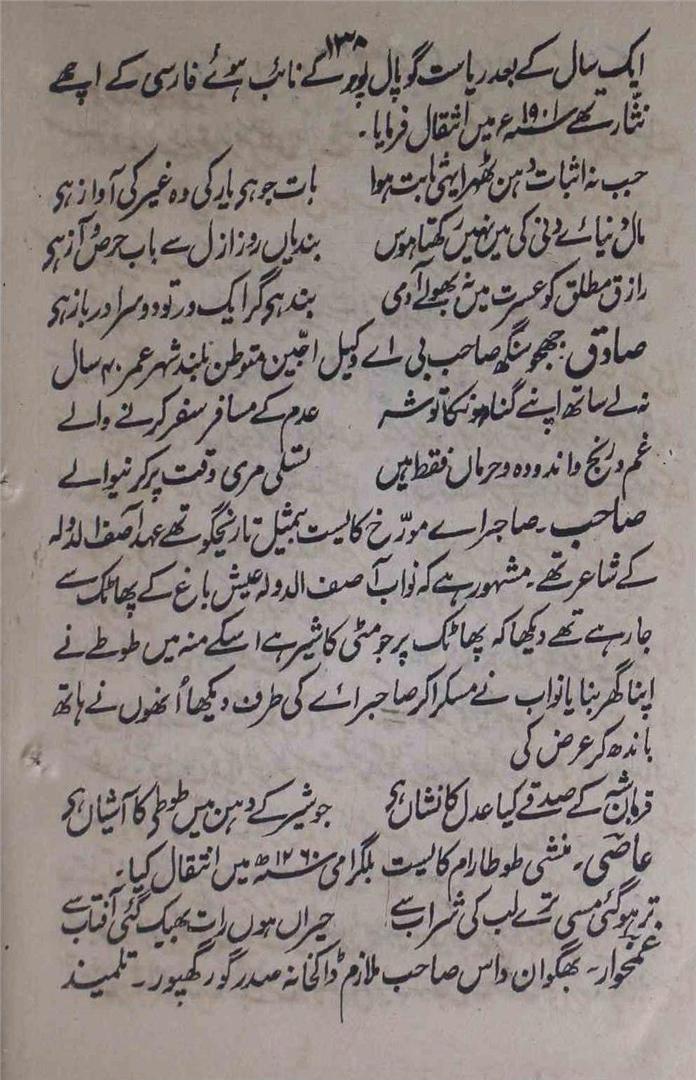 ۱۳۸
ایک سال کے بعد ریاست گوپال پور کے نائب ہوئے فارسی کے اچھے
نثّار تھے سنہ ۱۹۰۱ء میں انتقال فرمایا۔
جب نہ اثبات دہن ٹھہرا یہی ثابت ہوا بات جو ہی یار کی وہ غیر کی آواز ہی
مال دنیائے دنی کی میں نہیں رکھتا ہوس بندیاں روز ازل سے باب حرص و آز ہی
رازق مطلق کو عسرت میں نہ بھولے آدمی بند ہی گر ایک در تو دوسرا در باز ہی
صادق۔ جھجو سنگھ صاحب بی اے وکیل اجین متوطن بلند شہر عمر ۴۰ سال
نہ لے ساتھ اپنے گناہونکا توشہ عدم کے مسافر سفر کرنے والے
غم و رنج و اندوہ و حرماں فقط ہیں تسلی مری وقت پر کرنیوالے
صاحب۔ صاحبراے مورّخ کایست بیمثیل تاریخگو تھے عہد آصف الدولہ
کے شاعر تھے۔ مشہور ہے کہ نواب آصف الدولہ عیش باغ کے پھاٹک سے
جا رہے تھے دیکھا کہ پھاٹک پر جو مٹی کا شیر ہے اسکے منہ میں طوطے نے
اپنا گھر بنایا نواب نے مسکرا کر صاحبرائے کی طرف دیکھا اُنھوں نے ہاتھ
باندھ کر عرض کی
قربان شہ کے صدقے کیا عدل کا نشاں ہی جو شیر کے دہن میں طوطی کا آشیاں ہی
عاصی۔ منشی طوطا رام کایست بلگرامی سنہ ۱۲۶۰ھ میں انتقال کیا۔
تر ہو گئی مسی ترے لب کی شراب سے حیراں ہوں رات بھیک گئی آفتاب سے
غمخوار۔ بھگوان داس صاحب ملازم ڈاکخانہ صدر گورکھپور۔ تلمیذ